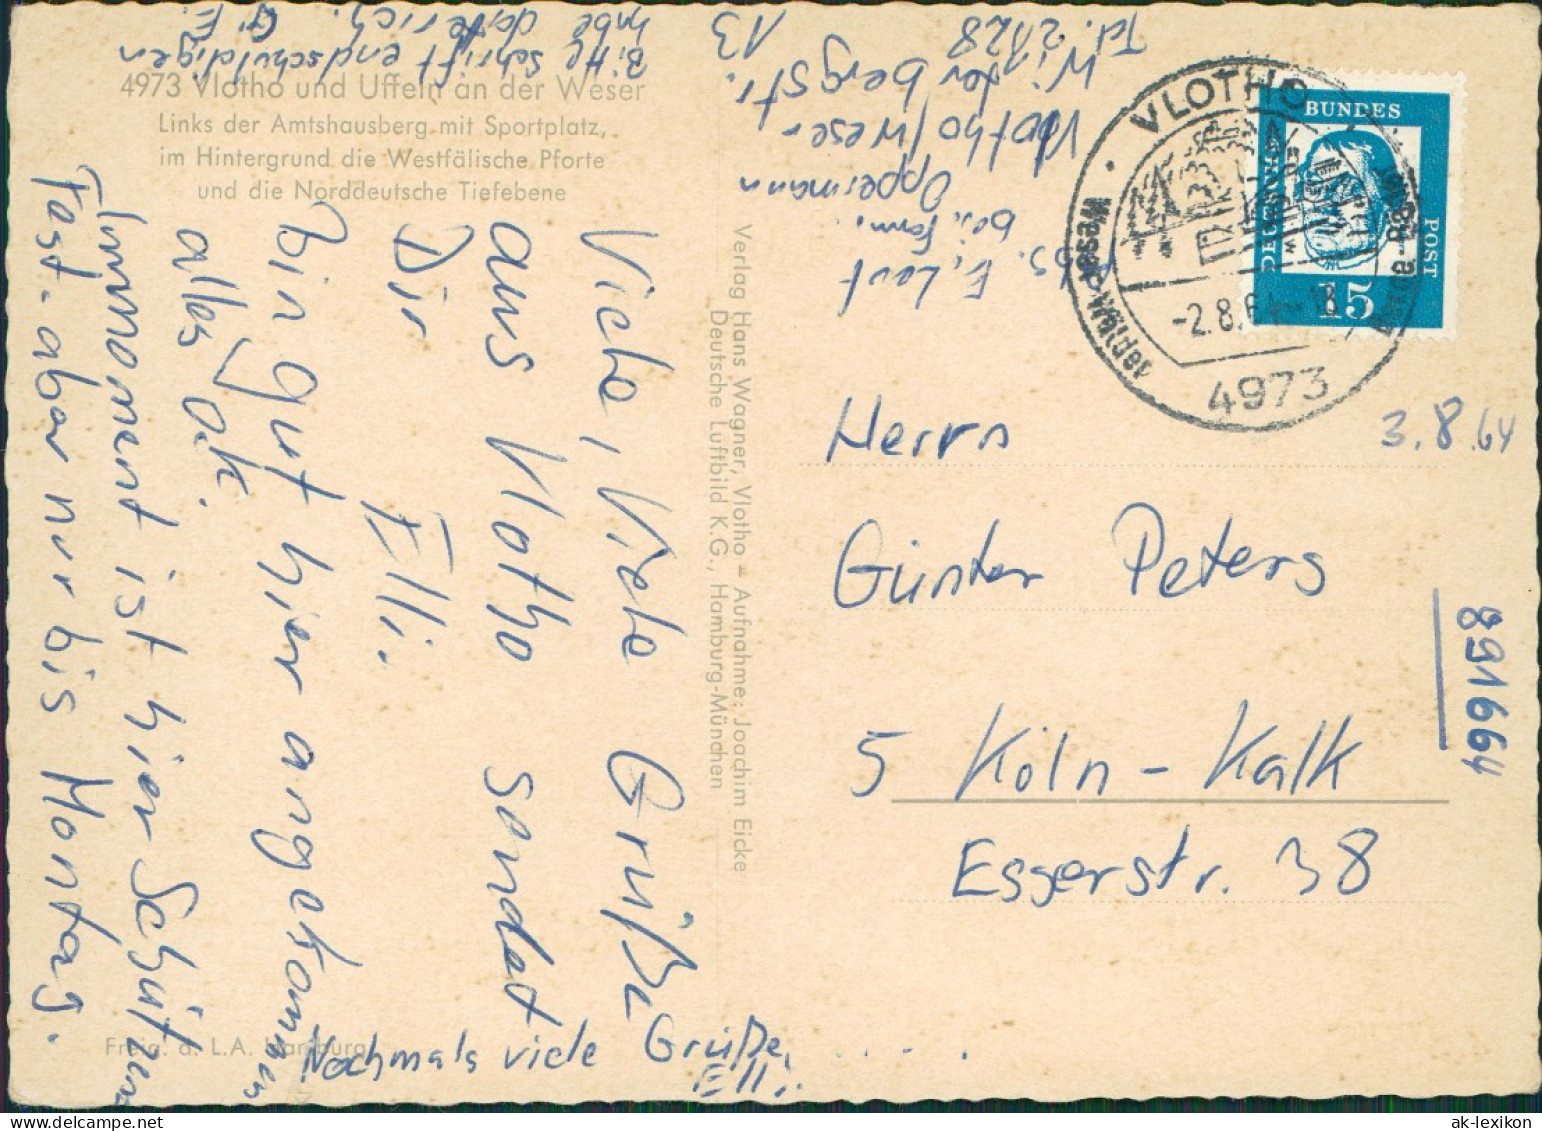 4973 Vlotho und Uffeln an der Weser
Links der Amtshausberg mit Sportplatz,
im Hintergrund die Westfälische Pforte
und die Norddeutsche Tiefebene
Viele, Viele Grüße
aus Vlotho sendet
Dir Elli.
bin gut hier angekommen
alles ok.
Immoment ist hier Schützen
Fest - aber nur bis Montag.
Nochmals viele Grüße,
Elli.
Bitte schrift endschuldigen
habe
G. E.
Abs. E. Lauf
bei Fam.
Oppermann
Vlotho/Weser
Winterbergstr.
13
Tel. 2128
Verlag Hans Wagner, Vlotho – Aufnahme: Joachim Eicke
Deutsche Luftbild K.G., Hamburg-München
Freig. d. L.A. Hamburg
VLOTHO
Weser-Wälder
-2.8.64-18
4973
BUNDES
POST
15
3.8.64
Herrn
Günter Peters
5 Köln-Kalk
Esserstr. 38
891664
ak-lexikon